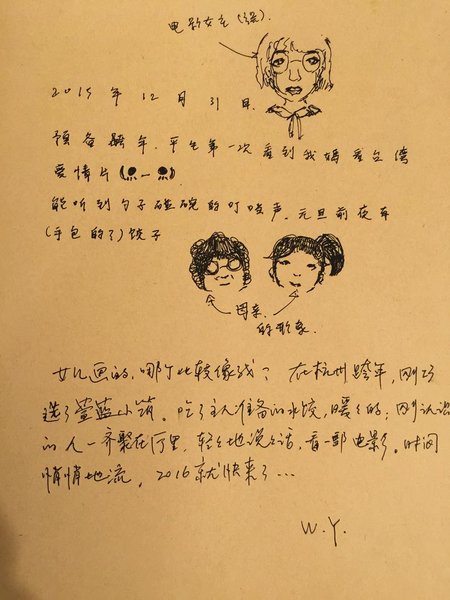 电影女主(误).
2015年12月31日.
预备跨年.平生第一次看到我妈看台湾
爱情片
能听到勺子碰碗的叮咚声.元旦前夜有
(手包的!)饺子
母亲
的形象.
女儿画的,哪个比较像我?在杭州跨年,刚巧
选了萱蓝小筑。吃了主人准备的水饺,暖暖的;刚认识
的人一齐聚在厅里,轻轻地说说话,看一部电影。时间
悄悄地流,2016就快来了...
W.Y.